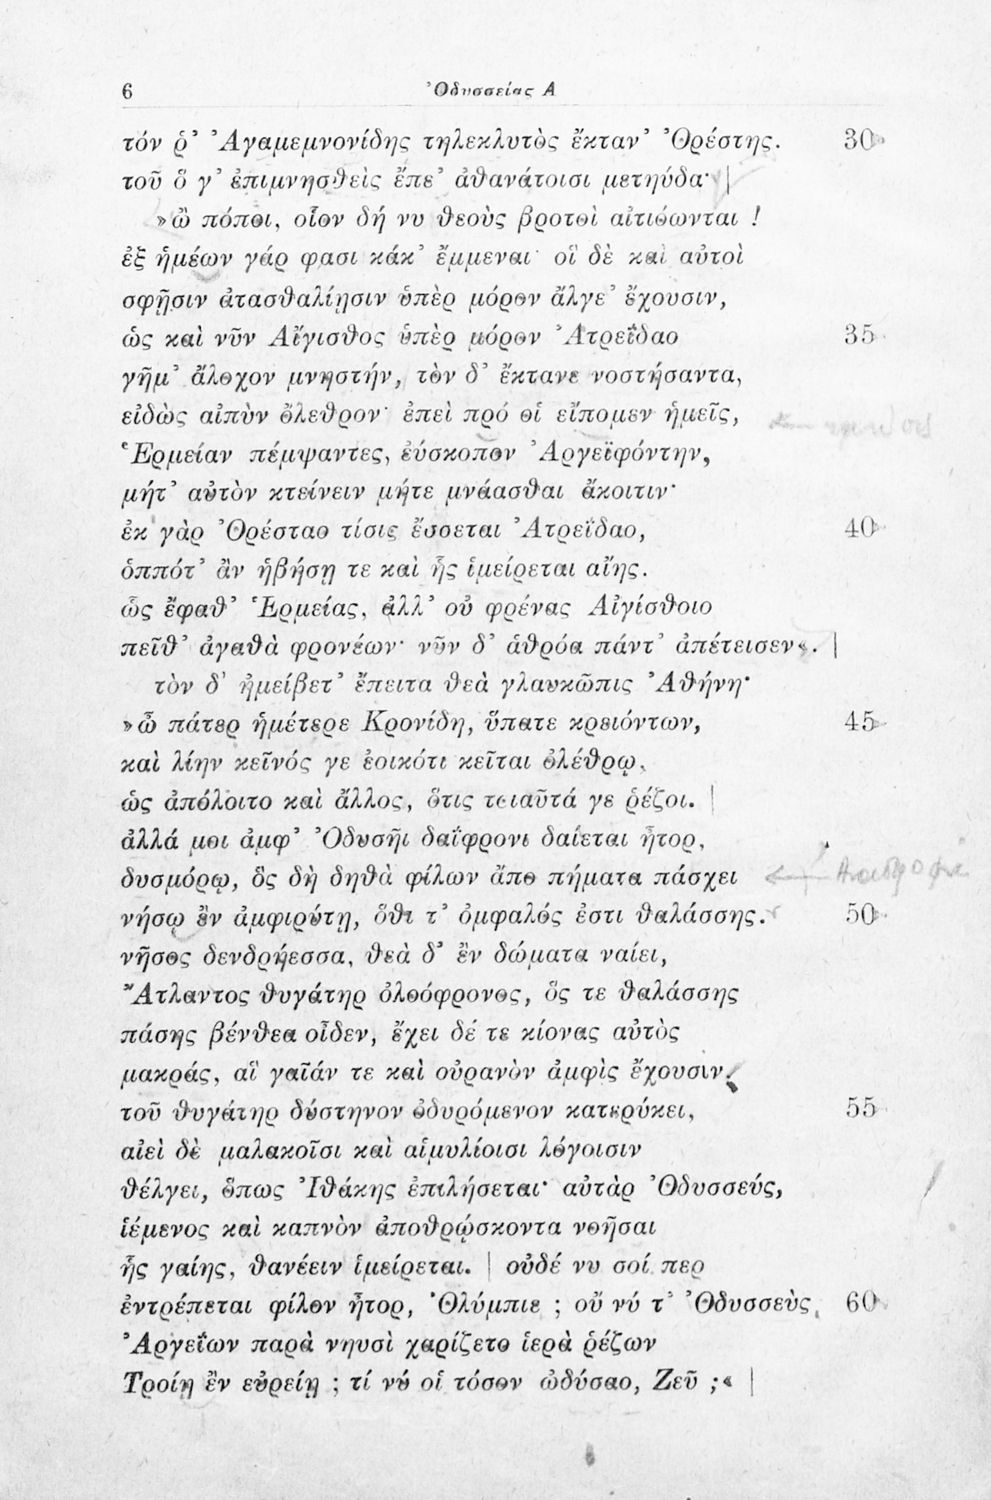 6 Ὀδυσσείας Α
τόν ῥ’ Ἀγαμεμνονίδης τηλεκλυτὸς ἔκταν’ Ὀρέστης. 30
τοῦ ὅ γ’ ἐπιμνησθεὶς ἔπε’ ἀθανάτοισι μετηύδα· |
»ὢ πόποι, οἷον δή νυ θεοὺς βροτοὶ αἰτιόωνται !
ἐξ ἡμέων γάρ φασι κάκ’ ἔμμεναι· οἳ δὲ καὶ αὐτοὶ
σφῇσιν ἀτασθαλίῃσιν ὑπὲρ μόρον ἄλγε’ ἔχουσιν,
ὡς καὶ νῦν Αἴγισθος ὑπὲρ μόρον Ἀτρεΐδαο 35
γῆμ’ ἄλοχον μνηστήν, τὸν δ’ ἔκτανε νοστήσαντα,
εἰδὼς αἰπὺν ὄλεθρον· ἐπεὶ πρό οἱ εἴπομεν ἡμεῖς,
Ἑρμείαν πέμψαντες, ἐύσκοπον Ἀργεϊφόντην,
μήτ’ αὐτὸν κτείνειν μήτε μνάασθαι ἄκοιτιν·
ἐκ γὰρ Ὀρέσταο τίσις ἔσσεται Ἀτρεΐδαο, 40
ὁππότ’ ἂν ἡβήσῃ τε καὶ ἧς ἱμείρεται αἴης.
ὣς ἔφαθ’ Ἑρμείας, ἀλλ’ οὐ φρένας Αἰγίσθοιο
πεῖθ’ ἀγαθὰ φρονέων· νῦν δ’ ἁθρόα πάντ’ ἀπέτεισεν«. |
τὸν δ’ ἠμείβετ’ ἔπειτα θεὰ γλαυκῶπις Ἀθήνη·
»ὦ πάτερ ἡμέτερε Κρονίδη, ὕπατε κρειόντων, 45
καὶ λίην κεῖνός γε ἐοικότι κεῖται ὀλέθρῳ,
ὡς ἀπόλοιτο καὶ ἄλλος, ὅτις τοιαῦτά γε ῥέζοι. |
ἀλλά μοι ἀμφ’ Ὀδυσῆι δαΐφρονι δαίεται ἦτορ,
δυσμόρῳ, ὃς δὴ δηθὰ φίλων ἄπο πήματα πάσχει
νήσῳ ἔν ἀμφιρύτῃ, ὅθι τ’ ὀμφαλός ἐστι θαλάσσης. 50
νῆσος δενδρήεσσα, θεὰ δ’ ἔν δώματα ναίει,
Ἄτλαντος θυγάτηρ ὀλοόφρονος, ὅς τε θαλάσσης
πάσης βένθεα οἶδεν, ἔχει δέ τε κίονας αὐτὸς
μακράς, αἳ γαῖάν τε καὶ οὐρανὸν ἀμφὶς ἔχουσιν.
τοῦ θυγάτηρ δύστηνον ὀδυρόμενον κατερύκει, 55
αἰεὶ δὲ μαλακοῖσι καὶ αἱμυλίοισι λόγοισιν
θέλγει, ὅπως Ἰθάκης ἐπιλήσεται· αὐτὰρ Ὀδυσσεύς,
ἱέμενος καὶ καπνὸν ἀποθρῴσκοντα νοῆσαι
ἧς γαίης, θανέειν ἱμείρεται. | οὐδέ νυ σοί περ
ἐντρέπεται φίλον ἦτορ, Ὀλύμπιε ; οὔ νύ τ’ Ὀδυσσεὺς 60
Ἀργεΐων παρὰ νηυσὶ χαρίζετο ἱερὰ ῥέζων
Τροίῃ ἔν εὐρείῃ ; τί νύ οἱ τόσον ὠδύσαο, Ζεῦ ;« |